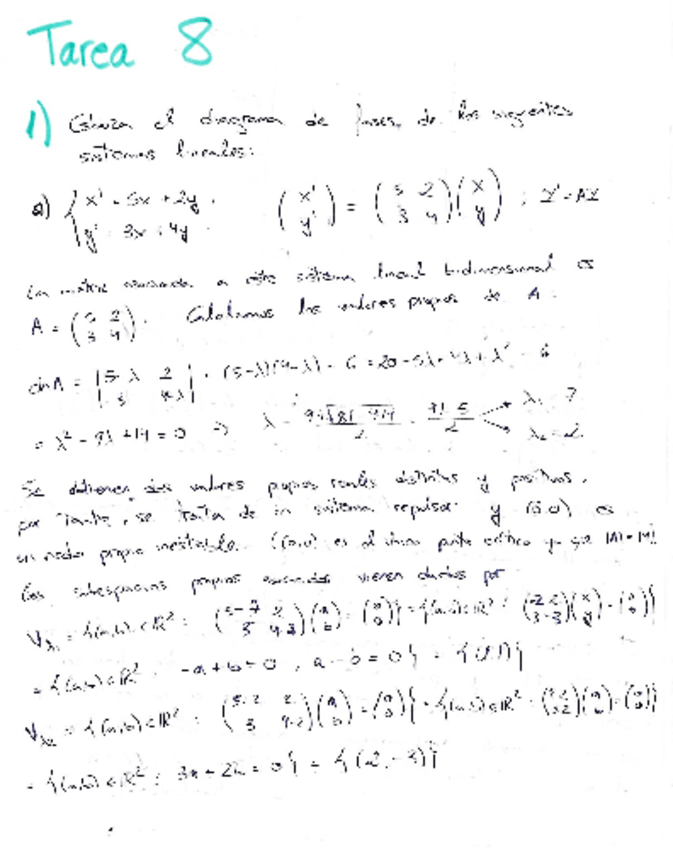 Tarea 8
1) Esboza el diagrama de fases de los siguientes
sistemas lineales:
a) { x' = 5x + 2y . ( x' ) = ( 5 2 ) ( x ) ; Y' = AY
y' = 3x + 4y ( y' ) ( 3 4 ) ( y )
La matriz asociada a este sistema lineal bidimensional es
A = ( 5 2 / 3 4 ) . Calculamos los valores propios de A :
| 5-λ 2 / 3 4-λ | = (5-λ)(4-λ) - 6 = 20 - 5λ - 4λ + λ² - 6
= λ² - 9λ + 14 = 0 ⇒ λ = 9 ± 5 / 2 λ₁ = 7
λ₂ = 2
Se obtienen dos valores propios reales distintos y positivos,
por tanto, se trata de un sistema repulsor y (0,0) es
un nodo propio inestable. ((0,0) es el único punto crítico ya que |A| =
Los subespacios propios asociados vienen dados por
V λ₁ = {(a,b) ∈ ℝ² : ( 5-7 2 / 3 4-7 ) ( a / b ) = ( 0 / 0 )} = {(a,b) ∈ ℝ² : ( -2 2 / 3 -3 ) ( x / y ) = ( 0 / 0 )}
= {(a,b) ∈ ℝ² : -a + b = 0 , a - b = 0} = {(1,1)}
V λ₂ = {(a,b) ∈ ℝ² : ( 5-2 2 / 3 4-2 ) ( a / b ) = ( 0 / 0 )} = {(a,b) ∈ ℝ² : ( 3 2 / 3 2 ) ( a / b ) = ( 0 / 0 )}
= {(a,b) ∈ ℝ² : 3a + 2b = 0} = {(2,-3)}